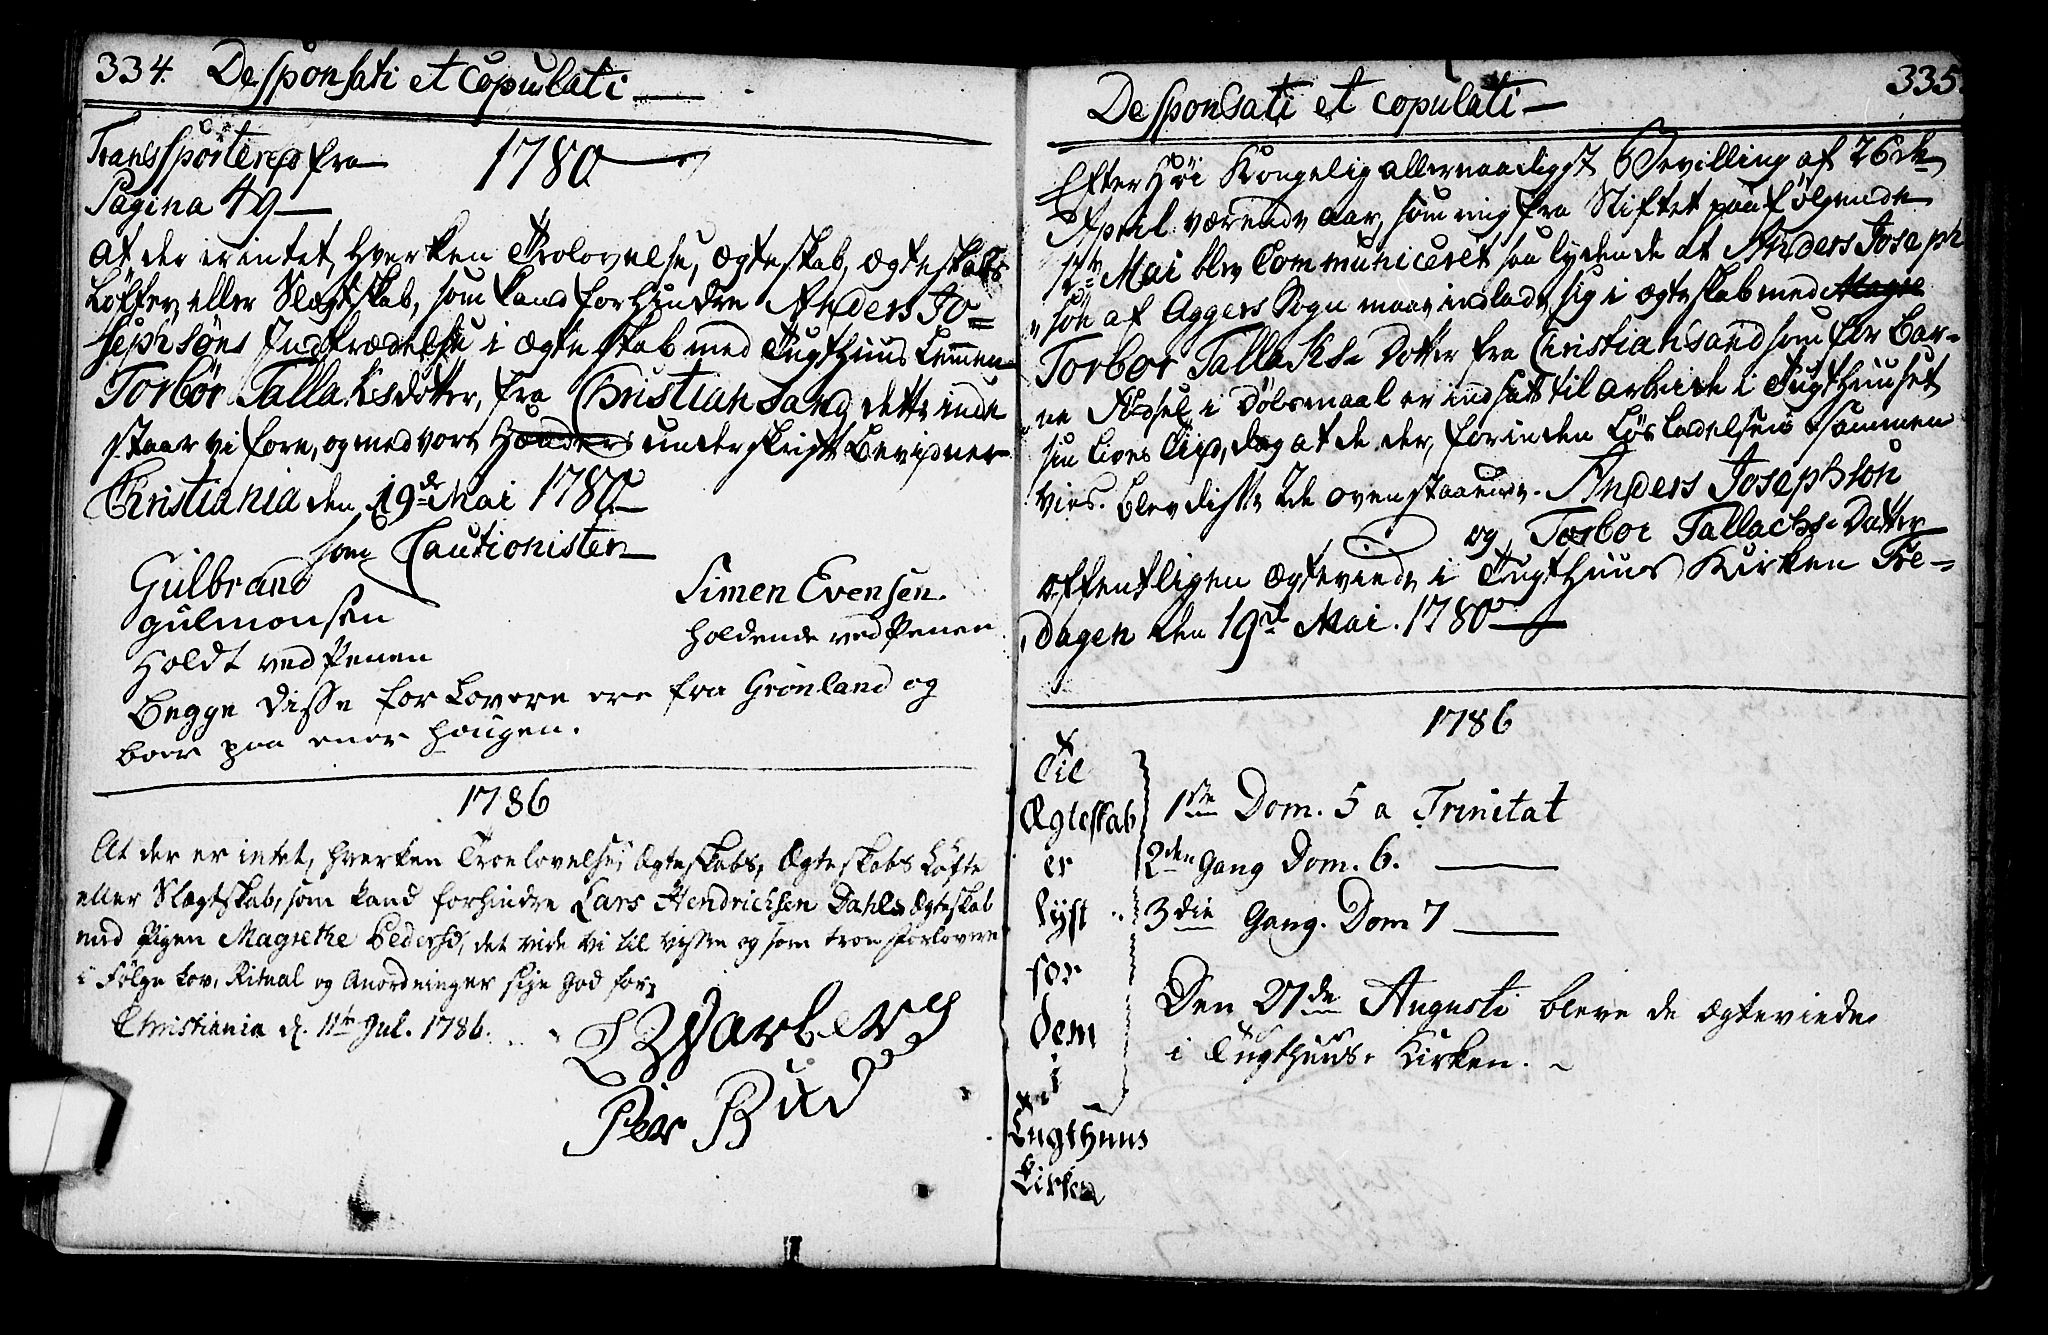 334. Desponsati et Copulati
Transporteres fra 1780
Pagina 49
At der er intet, hverken Trolovelse, Ægteskab, Ægteskabs
Løfter, eller Slægtskab, som kand forhindre Anders Jo=
sephsøns Indtrædelse i Ægteskab med Tugthuus Lemmen
Torbør Tallaksdotter, fra Christiansand, dette inde
staar vi fore, og med vore Hænders underskrift Bevidner
Christiania den 19de Mai 1780.
som Cautionister
Gulbrand
Gulmonsen
Holdt ved Penen
Simen Evensen.
holdende ved Penen
Begge disse forlovere ere fra Grønland og
boer paa ener Haugen.
1786
At der er intet, hverken Troelovelse, Ægteskabs, Ægteskabs Løfte
eller Slægtskab, som kand forhindre Lars Hendrichsen Dahls Ægteskab
med Pigen Magrethe Pedersd, det vide vi til visse og som troe Forlovere
i Følge Lov, Ritual og Anordninger sige God for,
Christiania d. 11te Jul. 1786.
Warberg
Peer Bud
335.
Desponsati et copulati
Efter Høi Kongelig allernaadigst Bevilling af 26de
April værende aar, som mig fra Stiftet paafølgende
Mai blev Communiceret saa lydende at Anders Joseph
søn af Aggers Sogn maae indlade sig i ægteskab med Magre
Torbor Tallaks Dotter fra Christiansand som for Bar=
ne Fødsel i Dølsmaal er indsatt til arbeide i Tugthuuset
sin Lives Tiid, dog at de der, forinden Løsladelsen sammen
vies. Blev disse 2de ovenstaaende. Anders Josephson
og Torbor Tallachs Datter
offentligen Ægteviede i Tugthuus Kirken Fre=
dagen den 19de Mai. 1780
1786
Til
Ægteskab
er
lyst
for
dem
i
Tugthuus
Kirken
1ste Dom. 5 a Trinitat
2den Gang Dom. 6.
3die Gang. Dom 7
Den 27de Augusti bleve de ægteviede
i Tugthuus Kirken.